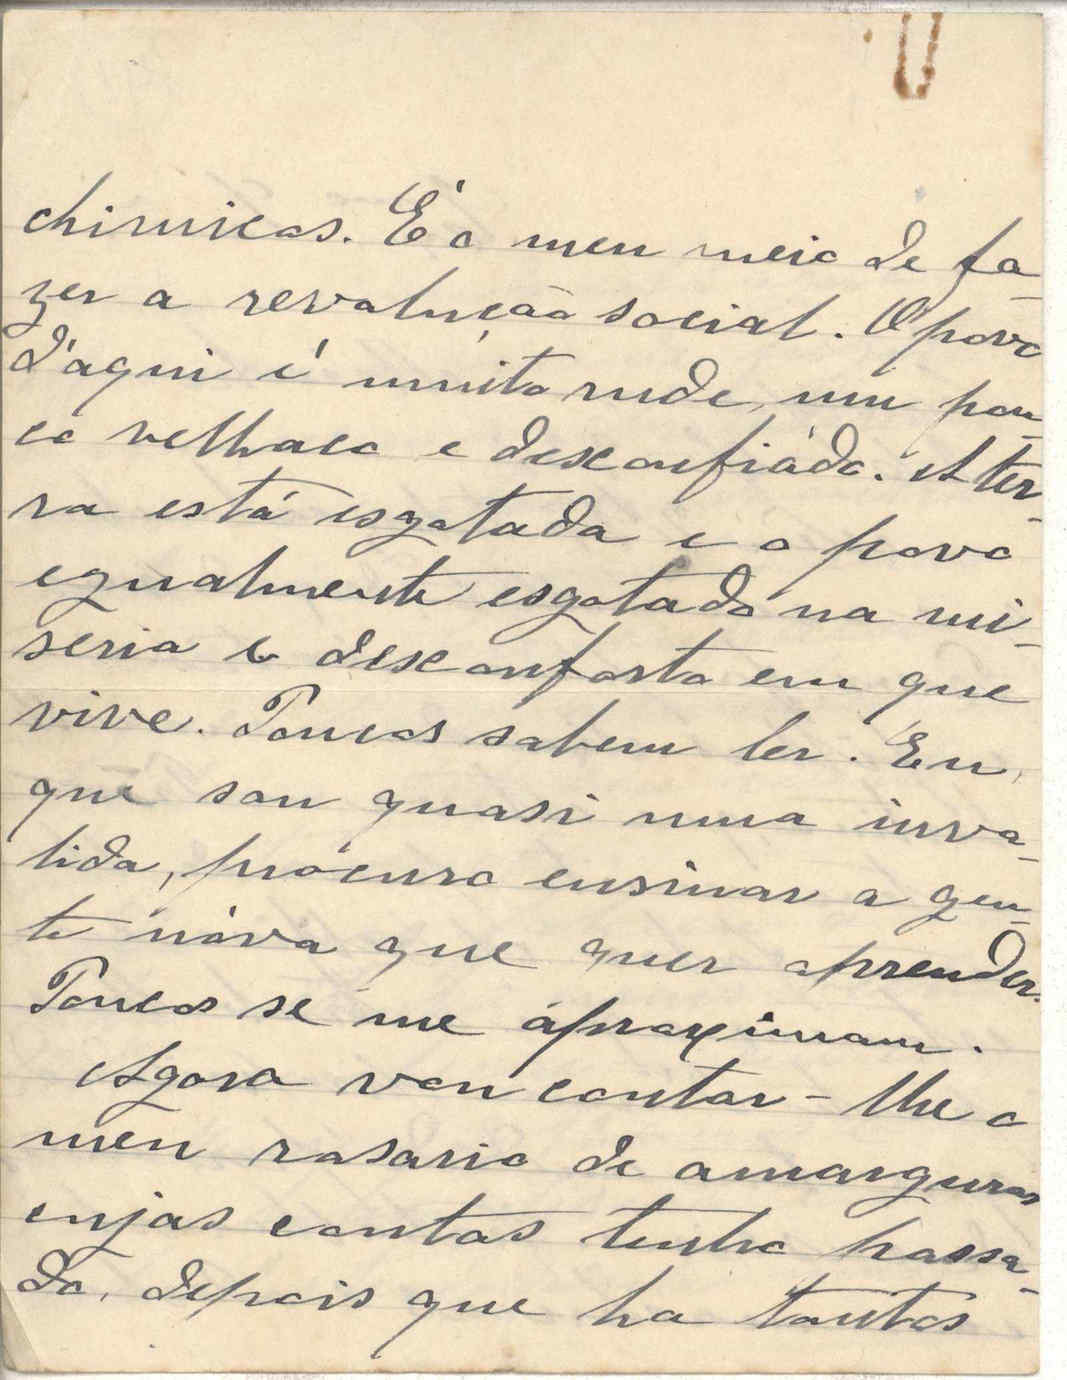 chimicos. É o meu meio de fa-
zer a revolução social. O povo
d'aqui é muito rude, um pou-
co velhaco e desconfiádo. A ter-
ra está esgotada e o povo
egualmente esgotado na mi-
seria e desconforto em que
vive. Poucos sabem ler. Eu,
que sou quasi uma inva-
lida, procuro ensinar a gen-
te nóva que quer aprender.
Poucos se me aproximam.
Agora vou contar-lhe o
meu rosario de amarguras
cujas contas tenho passa-
do, depois que ha tantos